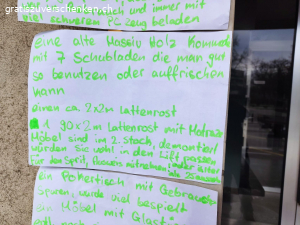 gratiszuverschenken.ch
und immer mit
viel schweren PC zeug beladen
Eine alte Massiv Holz Kommode
mit 7 Schubladen die man gut
so benutzen oder auffrischen
kann
einen ca. 2x2m Lattenrost
1 90x2m Lattenrost mit Matraze
Möbel sind im 2. Stock, demontiert
würden sie wohl in den Lift passen
für den Sprit,
ein Pokertisch mit Gebrauchs
spuren, wurde viel bespielt
ein Möbel mit Glast